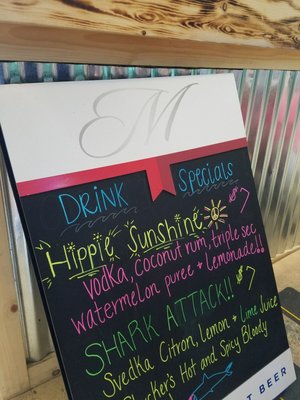 M
DRINK Specials
Hippie Sunshine
Vodka, coconut rum, triple sec
watermelon puree + lemonade!!
SHARK ATTACK!!
Svedka Citron, lemon + lime Juice
Hot and Spicy Bloody
BEER